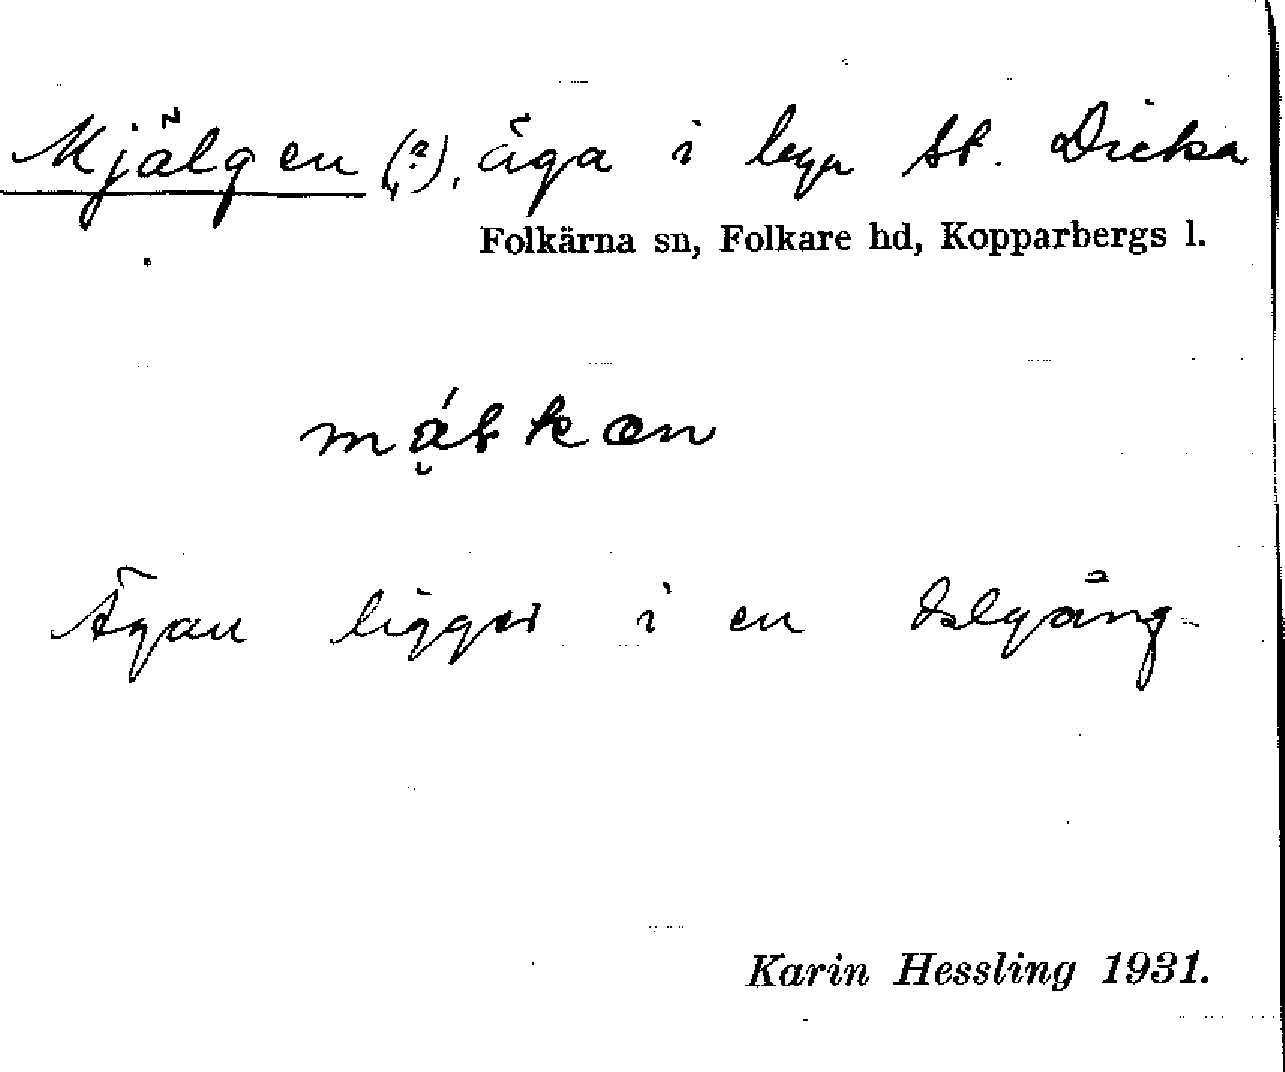 Mjälgen (?), äga i byn St. Dicka
Folkärna sn, Folkare hd, Kopparbergs l.
Ägan ligger i en
Karin Hessling 1931.